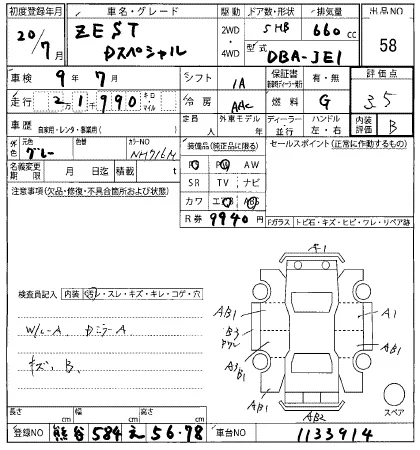 初度登録年月 車名・グレード 駆動 ドア数・形状 排気量 出品NO
20/7月 ZEST Dスペシャル 2WD ・ 4WD 5HB 660cc 58
型式 DBA-JE1
車検 9年7月 シフト IA 保証書 有・無 評価点
走行 21,990 キロ・マイル 冷房 AAC 燃料 G 3.5
車歴 自家用・レンタ・事業用( ) 定員 人 外車モデル 年 ディーラー・並行 ハンドル 左・右 内装評価 B
元色 グレー 色替 カラーNO NH716M 装備品(純正品に限る) セールスポイント(正常に作動するもの)
名義変更期限 月 日迄 積載 t PS PW AW
注意事項(欠品・修復・不具合箇所および状態) SR TV ナビ
カワ エアB ABS
R券 9940円 Fガラス トビ石・キズ・ヒビ・ワレ・リペア跡
検査員記入 内装 汚レ・スレ・キズ・キレ・コゲ・穴
W/L-A Dミラー A
キズ、B、
A1
AB1
A1
B3
AB1
A3
B1
AB1
AB2
スペア
長さ cm 幅 cm 高さ cm
登録NO 熊谷 584 え 56-78 車台NO 1133914